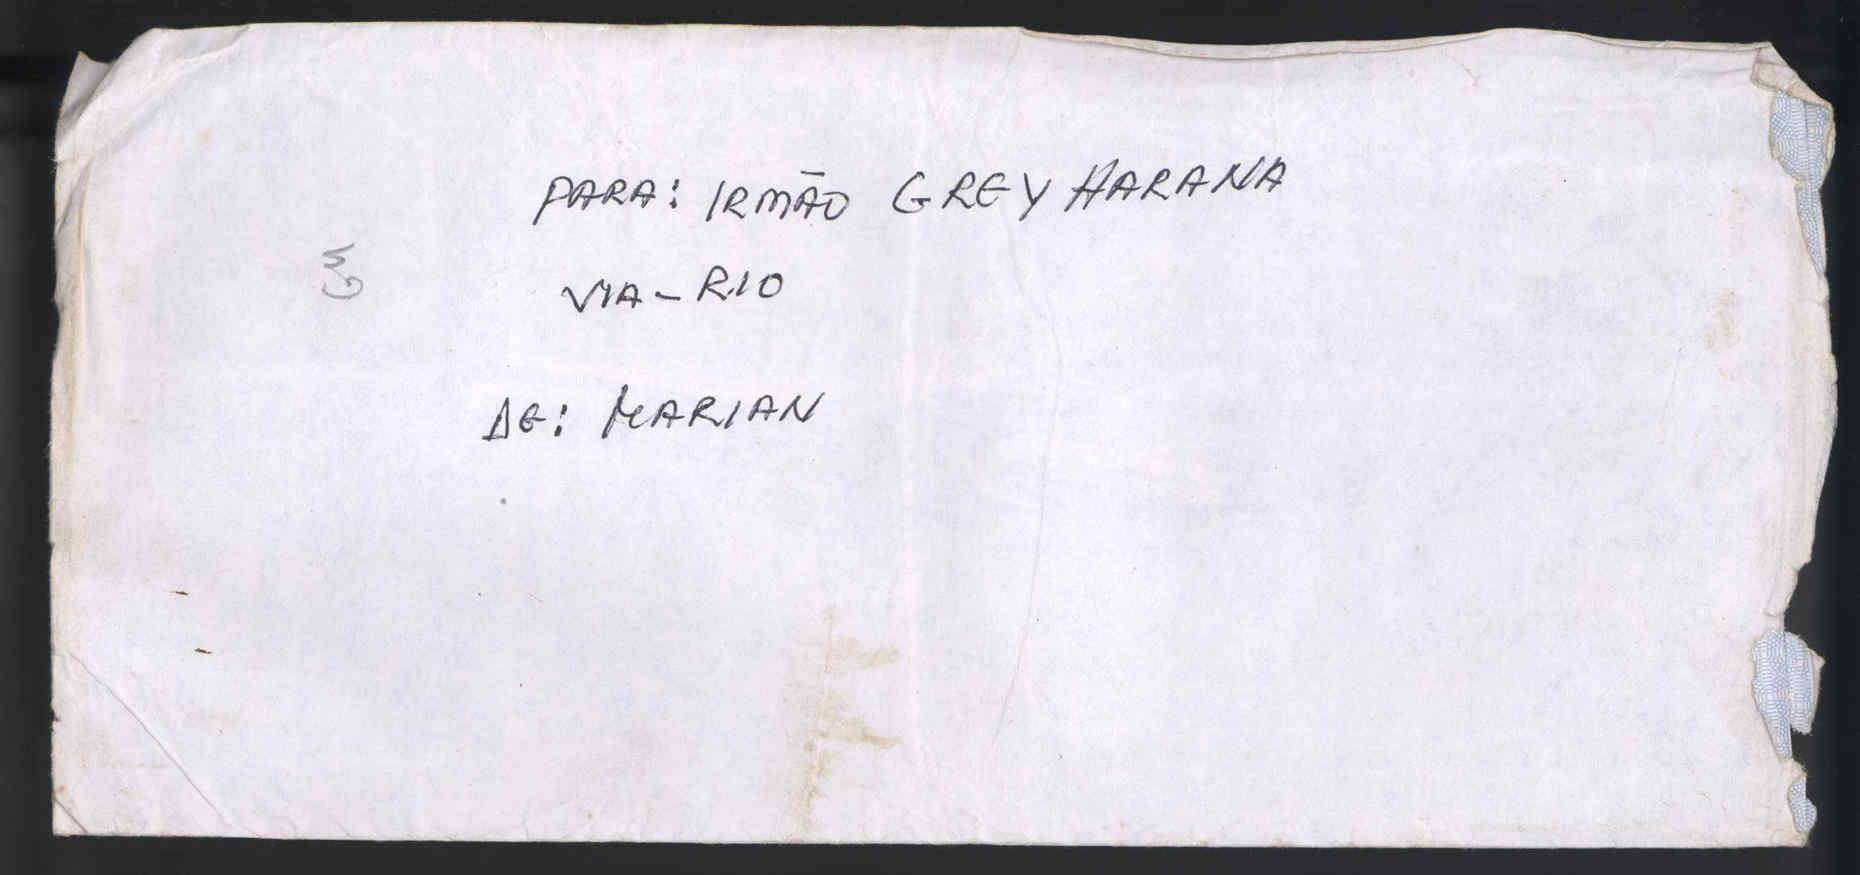 PARA: IRMÃO GREY HARANA
VIA - RIO
DE: MARIAN